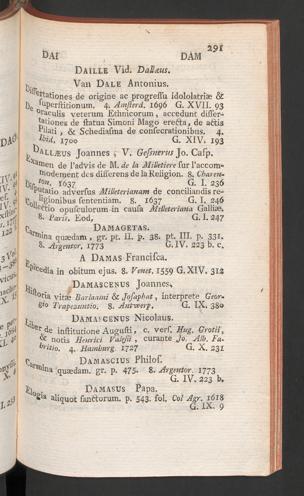 291
DAI DAM
DAILLE Vid. Dallæus.
Van DALE Antonius.
Dissertationes de origine ac progressu idololatriæ &
superstitionum. 4. Amsterd. 1696 G. XVII. 93
De oraculis veterum Ethnicorum, accedunt disser-
tationes de statua Simoni Mago erecta, de actis
Pilati, & Schediasma de consecrationibus. 4.
Ibid. 1700 G. XIV. 193
DALLÆUS Joannes, V. Gesnerus Jo. Casp.
Examen de l'advis de M. de la Milletiere sur l'accom-
modement des differens de la Religion. 8. Charen-
ton. 1637 G. I. 236
Disputatio adversus Milleterianam de conciliandis re-
ligionibus sententiam. 8. 1637 G. I. 246
Collectio opusculorum in causa Milleteriana Galliæ,
8. Paris. Eod, G. I. 247
DAMAGETAS.
Carmina quædam, gr. pt. II. p. 38. pt. III. p. 331.
8. Argentor. 1773 G. IV. 223 b. c,
A DAMAS Francisca.
Epicedia in obitum ejus. 8. Venet. 1559 G. XIV. 312
DAMASCENUS Joannes,
Historia vitæ Barlaami & Josaphat, interprete Geor-
gio Trapezuntio. 8. Antwerp. G. IX. 380
DAMASCENUS Nicolaus.
Liber de institutione Augusti, c. vers. Hug. Grotii,
& notis Henrici Valesii, curante Jo. Alb. Fa-
britio. 4. Hamburg. 1727 G. X. 231
DAMASCIUS Philos.
Carmina quædam. gr. p. 475. 8. Argentor. 1773
G. IV. 223 b.
DAMASUS Papa.
Elogia aliquot sanctorum. p. 543. fol. Col Agr. 1618
G. IX. 9